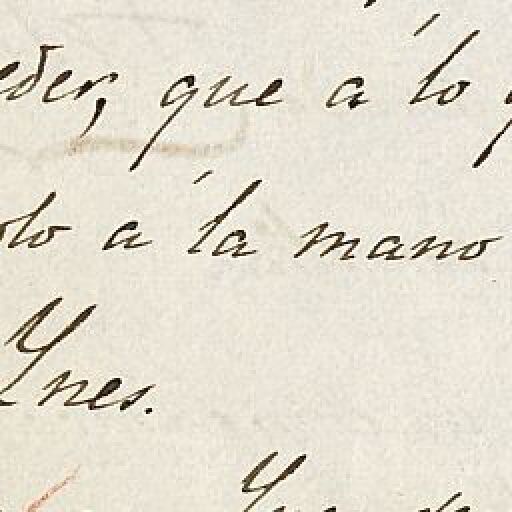 eder, que á lo
olo á la mano
Ynes.